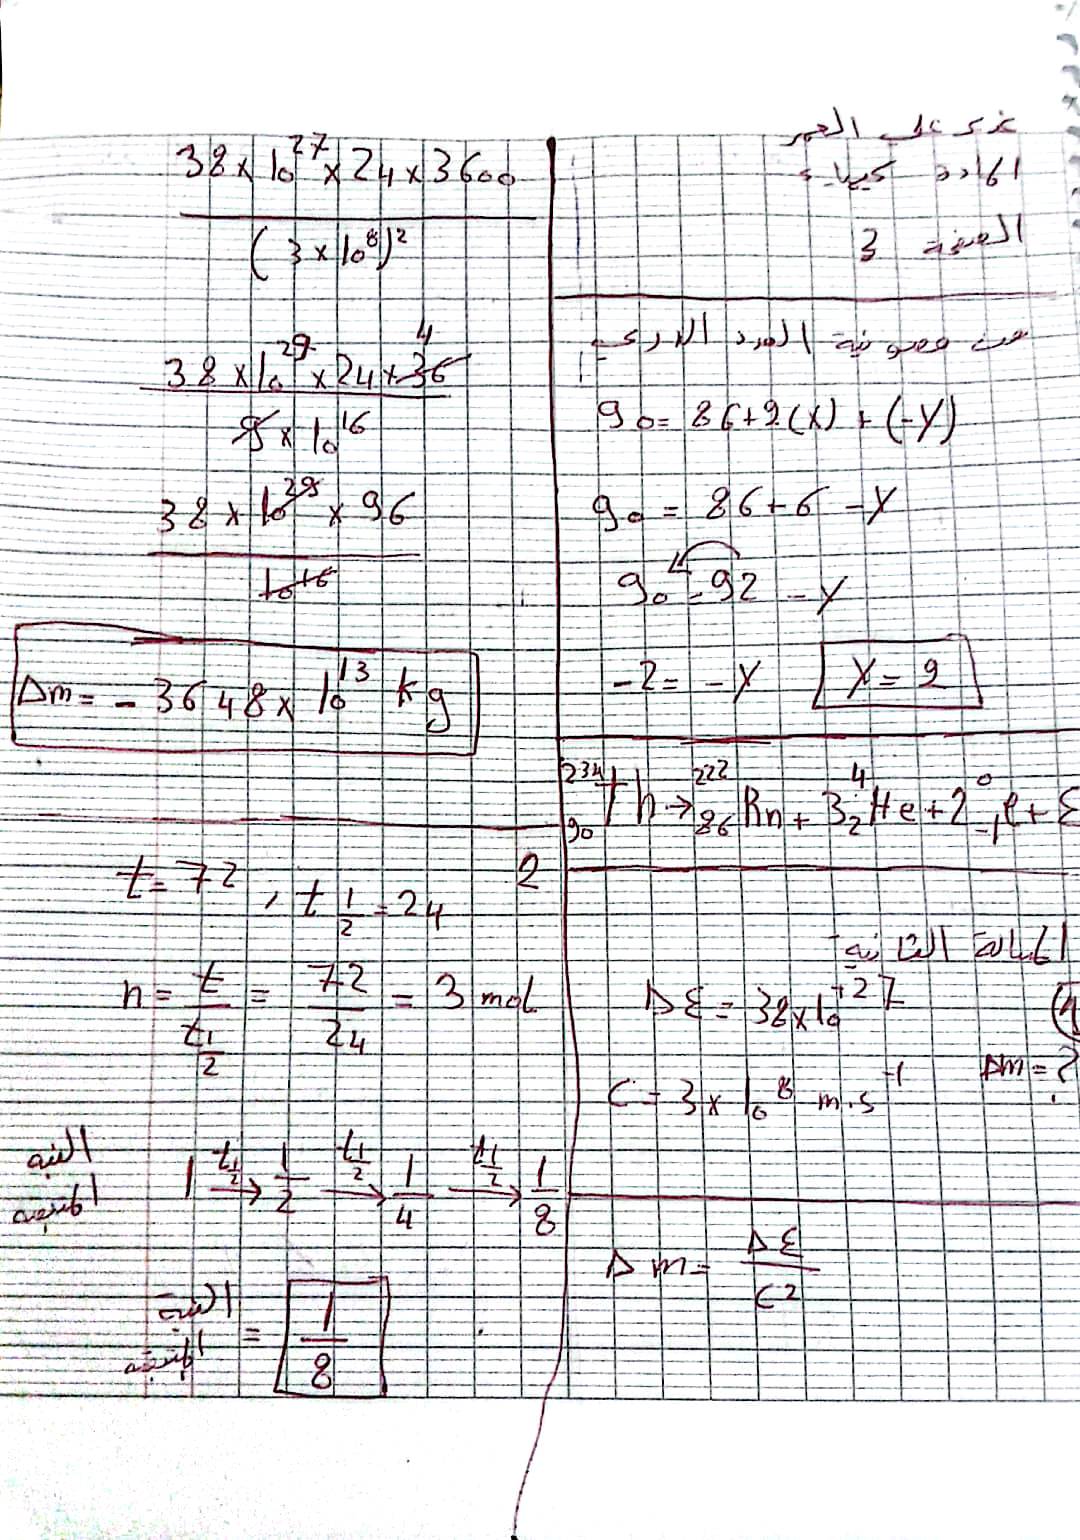 المادة كيمياء
الصفحة 3
من مصونية العدد الذري
90 = 86+2(x) + (-y)
90 = 86+6 -y
90 = 92 - y
-2 = -y y = 2
²³⁴₉₀Th → ²²²₈₆Rn + 3⁴₂He + 2⁰₋₁e + E
المسألة الثانية
ΔE = 38x10⁺²⁷
Δm = ?
C = 3 x 10⁸ m.s⁻¹
Δm = ΔE / C²
38 x 10²⁷ x 24 x 3600
(3 x 10⁸)²
4
38 x 10²⁹ x 24 x 36
9 x 10¹⁶
38 x 10²⁹ x 96
10¹⁶
Δm = - 3648 x 10¹³ kg
2
t = 72 , t 1/2 = 24
n = t / t1/2 = 72 / 24 = 3 mol
النسبة المتبقية
1 t1/2→ 1/2 t1/2→ 1/4 t1/2→ 1/8
النسبة المتبقية = 1/8